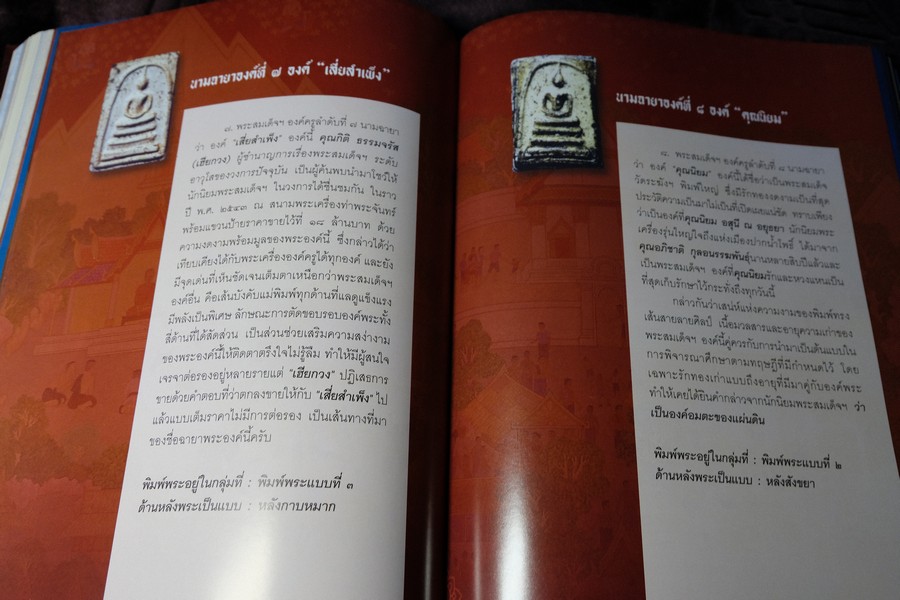 นามฉายาองค์ที่ ๗ องค์ "เสี่ยสำเพ็ง"
๗. พระสมเด็จฯ องค์ครูลำดับที่ ๗ นามฉายา
ว่า องค์ "เสี่ยสำเพ็ง" องค์นี้ คุณกิติ ธรรมจรัส
(เฮียกวง) ผู้ชำนาญการเรื่องพระสมเด็จฯ ระดับ
อาวุโสของวงการปัจจุบัน เป็นผู้ค้นพบนำมาโชว์ให้
นักนิยมพระสมเด็จฯ ในวงการได้ชื่นชมกัน ในราว
ปี พ.ศ. ๒๕๔๓ ณ สนามพระเครื่องท่าพระจันทร์
พร้อมแขวนป้ายราคาขายไว้ที่ ๑๘ ล้านบาท ด้วย
ความงดงามพร้อมมูลของพระองค์นี้ ซึ่งกล่าวได้ว่า
เทียบเคียงได้กับพระเครื่ององค์ครูได้ทุกองค์ และยัง
มีจุดเด่นที่เห็นชัดเจนเต็มตาเหนือกว่าพระสมเด็จฯ
องค์อื่น คือเส้นบังคับแม่พิมพ์ทุกด้านที่แลดูแข็งแรง
มีพลังเป็นพิเศษ ลักษณะการตัดขอบรอบองค์พระทั้ง
สี่ด้านที่ได้สัดส่วน เป็นส่วนช่วยเสริมความสง่างาม
ของพระองค์นี้ให้ติดตาตรึงใจไม่รู้ลืม ทำให้มีผู้สนใจ
เจรจาต่อรองอยู่หลายรายแต่ "เฮียกวง" ปฏิเสธการ
ขายด้วยคำตอบที่ว่าตกลงขายให้กับ "เสี่ยสำเพ็ง" ไป
แล้วแบบเต็มราคาไม่มีการต่อรอง เป็นเส้นทางที่มา
ของชื่อฉายาพระองค์นี้ครับ
พิมพ์พระอยู่ในกลุ่มที่ : พิมพ์พระแบบที่ ๓
ด้านหลังพระเป็นแบบ : หลังกาบหมาก
นามฉายาองค์ที่ ๘ องค์ "คุณนิยม"
๘. พระสมเด็จฯ องค์ครูลำดับที่ ๘ นามฉายา
ว่า องค์ "คุณนิยม" องค์นี้ได้ชื่อว่าเป็นพระสมเด็จ
วัดระฆังฯ พิมพ์ใหญ่ ซึ่งมีรักทองงดงามเป็นที่สุด
ประวัติความเป็นมาไม่เป็นที่เปิดเผยแน่ชัด ทราบเพียง
ว่าเป็นองค์ที่คุณนิยม อสุนี ณ อยุธยา นักนิยมพระ
เครื่องรุ่นใหญ่ใจถึงแห่งเมืองปากน้ำโพธิ์ ได้มาจาก
คุณอภิชาติ กุลอนรรฆพันธุ์นานหลายสิบปีแล้วและ
เป็นพระสมเด็จฯ องค์ที่คุณนิยมรักและหวงแหนเป็น
ที่สุดเก็บรักษาไว้กระทั่งถึงทุกวันนี้
กล่าวกันว่าเสน่ห์แห่งความงามของพิมพ์ทรง
เส้นสายลายศิลป์ เนื้อมวลสารและอายุความเก่าของ
พระสมเด็จฯ องค์นี้คู่ควรกับการนำมาเป็นต้นแบบใน
การพิจารณาศึกษาตามทฤษฎีที่มีกำหนดไว้ โดย
เฉพาะรักทองเก่าแบบถึงอายุที่มีมาคู่กับองค์พระ
ทำให้เคยได้ยินคำกล่าวจากนักนิยมพระสมเด็จฯ ว่า
เป็นองค์อมตะของแผ่นดิน
พิมพ์พระอยู่ในกลุ่มที่ : พิมพ์พระแบบที่ ๒
ด้านหลังพระเป็นแบบ : หลังสังขยา